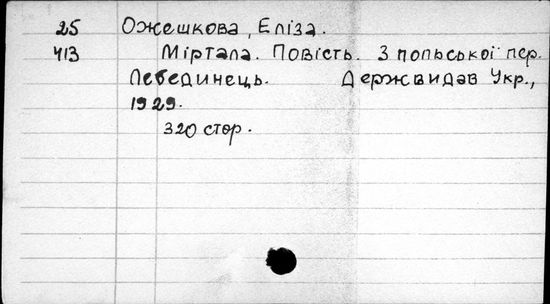 25 Ожешкова, Еліза.
413 Міртала. Повість. З польської пер.
Лебединець. Держвидав Укр.,
1929.
320 стор.